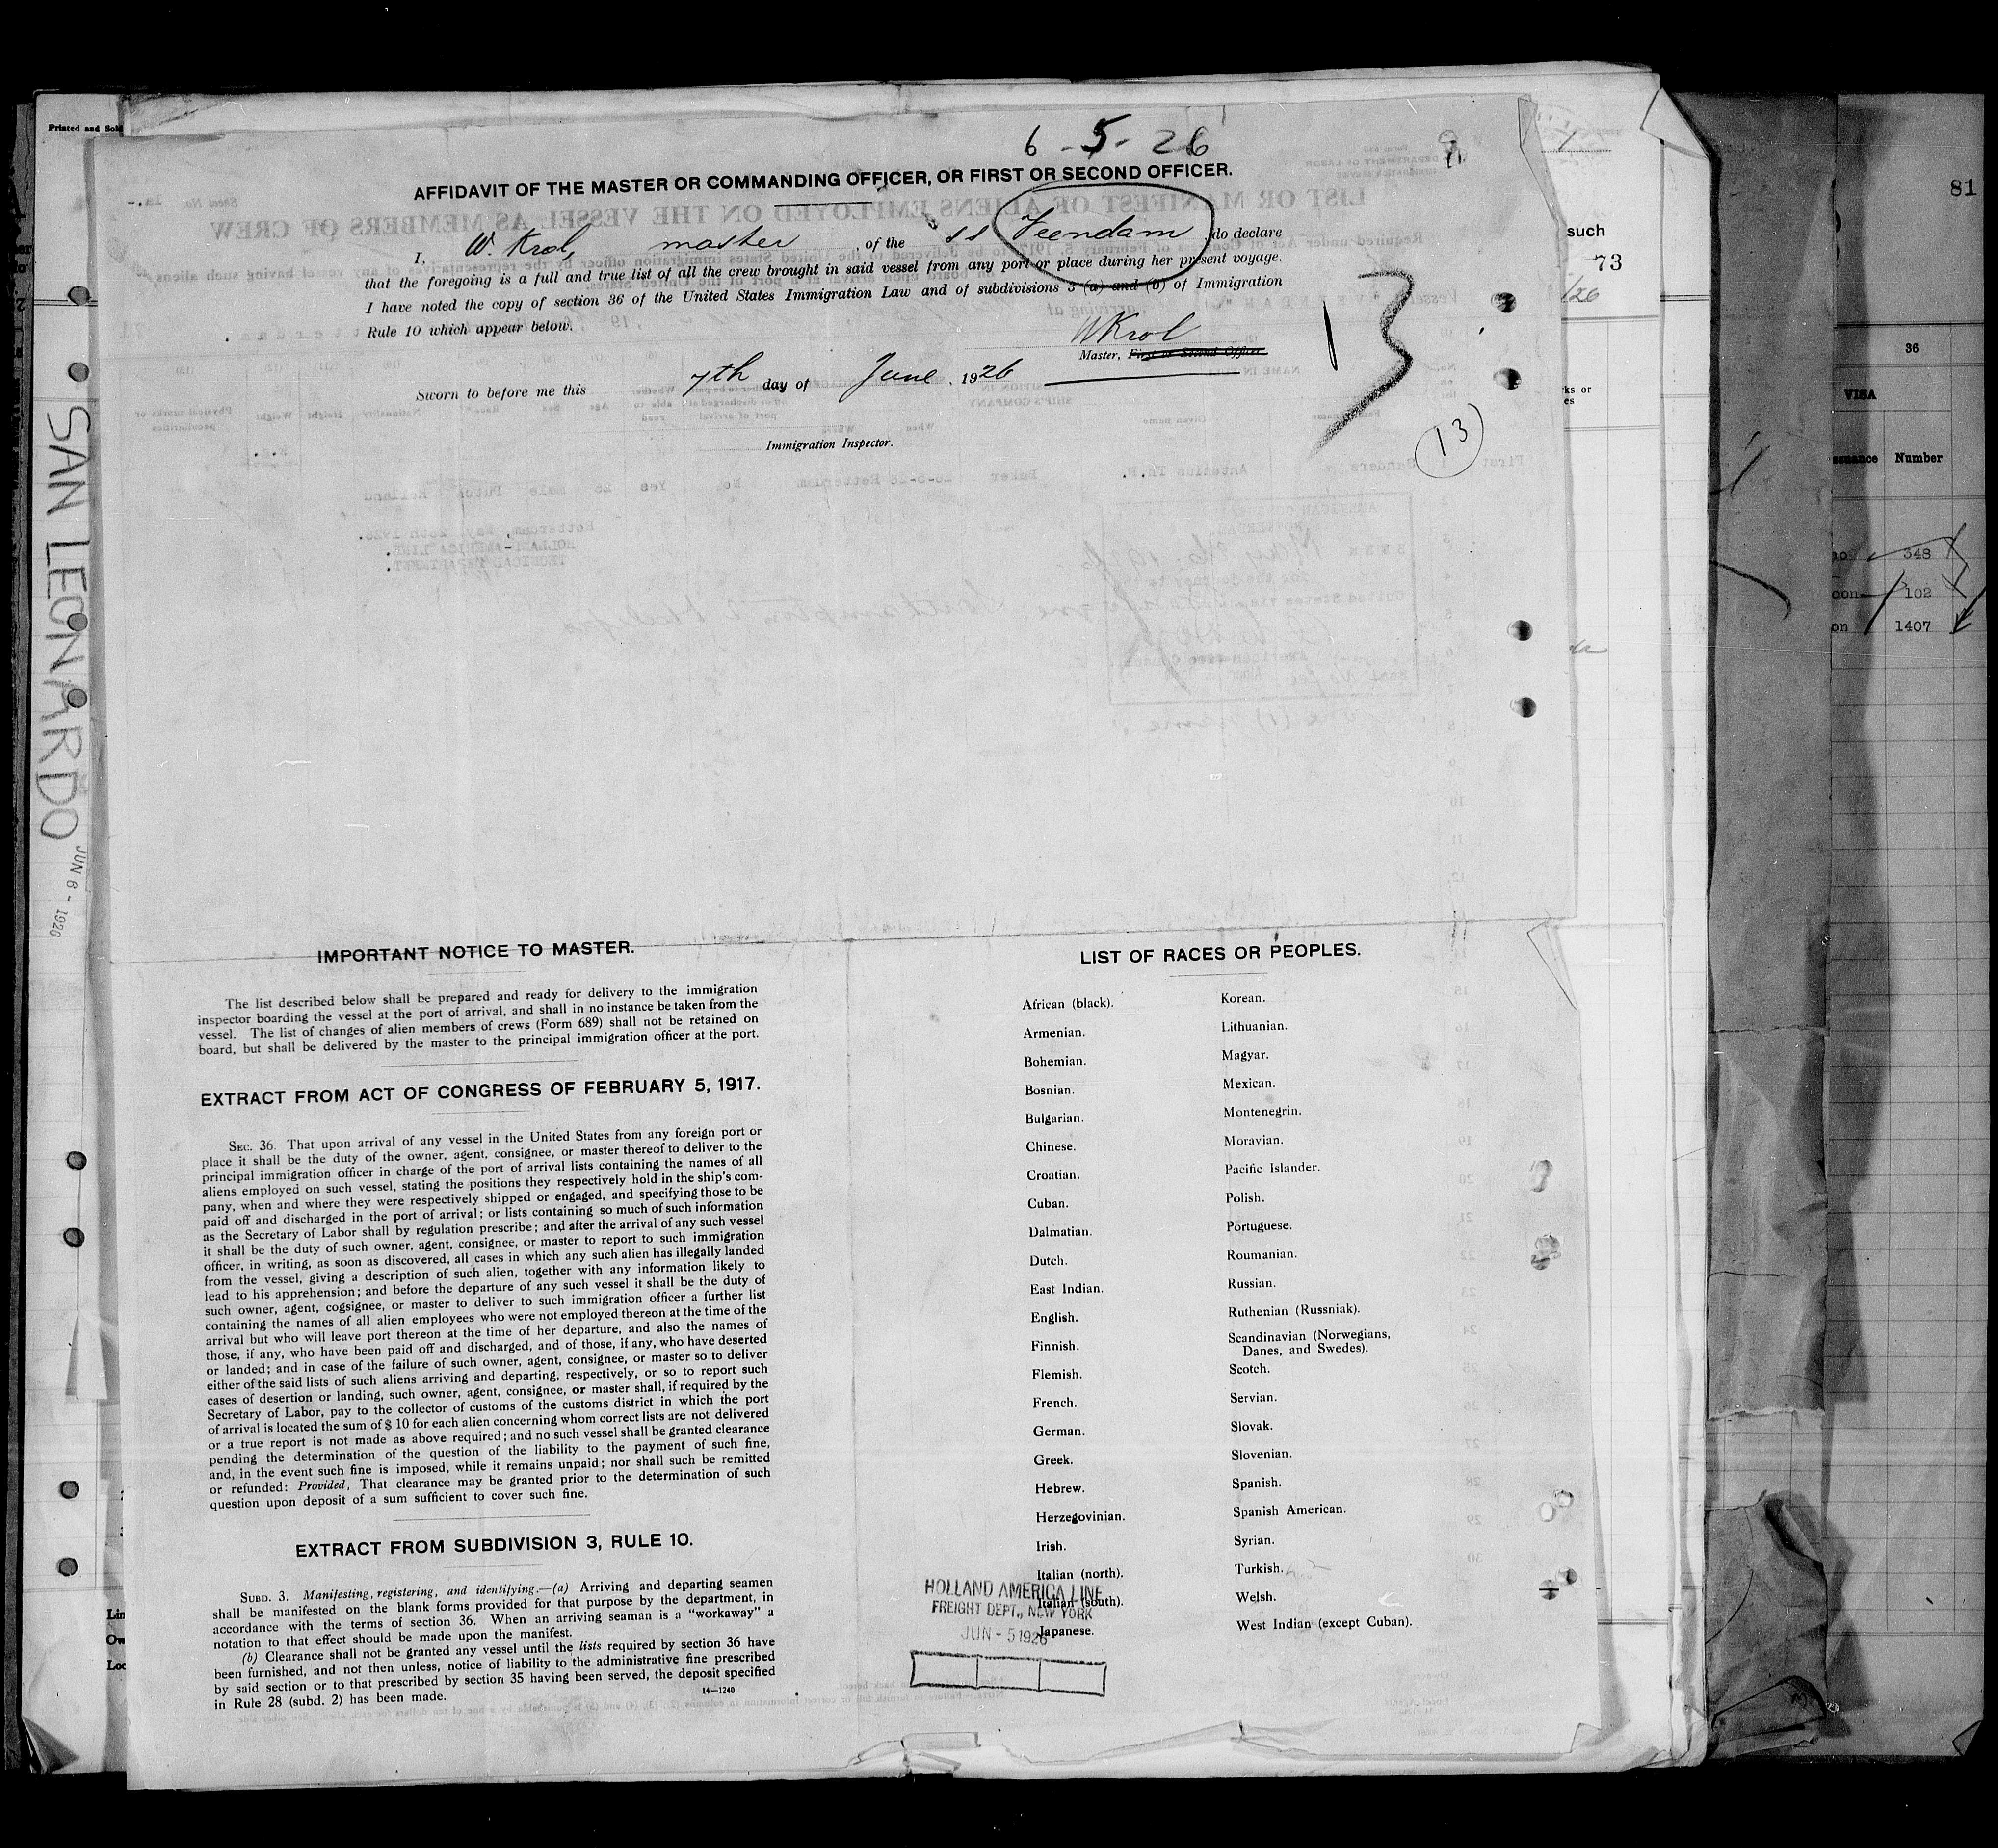 Printed and Sold
6-5-26
AFFIDAVIT OF THE MASTER OR COMMANDING OFFICER, OR FIRST OR SECOND OFFICER.
I, W. Krol, master, of the SS Veendam, do declare
that the foregoing is a full and true list of all the crew brought in said vessel from any port or place during her present voyage.
I have noted the copy of section 36 of the United States Immigration Law and of subdivisions 3 (a) and (b) of Immigration
Rule 10 which appear below.
WKrol
Master, First or Second Officer
Sworn to before me this 7th day of June, 1926
Immigration Inspector.
13
13
SAN LEONARDO
JUN 6 - 1926
such
73
/26
ks or
es
81
36
VISA
ssuance Number
no 348
oon 102
on 1407
IMPORTANT NOTICE TO MASTER.
The list described below shall be prepared and ready for delivery to the immigration
inspector boarding the vessel at the port of arrival, and shall in no instance be taken from the
vessel. The list of changes of alien members of crews (Form 689) shall not be retained on
board, but shall be delivered by the master to the principal immigration officer at the port.
EXTRACT FROM ACT OF CONGRESS OF FEBRUARY 5, 1917.
SEC. 36. That upon arrival of any vessel in the United States from any foreign port or
place it shall be the duty of the owner, agent, consignee, or master thereof to deliver to the
principal immigration officer in charge of the port of arrival lists containing the names of all
aliens employed on such vessel, stating the positions they respectively hold in the ship's com-
pany, when and where they were respectively shipped or engaged, and specifying those to be
paid off and discharged in the port of arrival; or lists containing so much of such information
as the Secretary of Labor shall by regulation prescribe; and after the arrival of any such vessel
it shall be the duty of such owner, agent, consignee, or master to report to such immigration
officer, in writing, as soon as discovered, all cases in which any such alien has illegally landed
from the vessel, giving a description of such alien, together with any information likely to
lead to his apprehension; and before the departure of any such vessel it shall be the duty of
such owner, agent, cogsignee, or master to deliver to such immigration officer a further list
containing the names of all alien employees who were not employed thereon at the time of the
arrival but who will leave port thereon at the time of her departure, and also the names of
those, if any, who have been paid off and discharged, and of those, if any, who have deserted
or landed; and in case of the failure of such owner, agent, consignee, or master so to deliver
either of the said lists of such aliens arriving and departing, respectively, or so to report such
cases of desertion or landing, such owner, agent, consignee, or master shall, if required by the
Secretary of Labor, pay to the collector of customs of the customs district in which the port
of arrival is located the sum of $ 10 for each alien concerning whom correct lists are not delivered
or a true report is not made as above required; and no such vessel shall be granted clearance
pending the determination of the question of the liability to the payment of such fine,
and, in the event such fine is imposed, while it remains unpaid; nor shall such be remitted
or refunded: Provided, That clearance may be granted prior to the determination of such
question upon deposit of a sum sufficient to cover such fine.
EXTRACT FROM SUBDIVISION 3, RULE 10.
SUBD. 3. Manifesting, registering, and identifying.—(a) Arriving and departing seamen
shall be manifested on the blank forms provided for that purpose by the department, in
accordance with the terms of section 36. When an arriving seaman is a "workaway" a
notation to that effect should be made upon the manifest.
(b) Clearance shall not be granted any vessel until the lists required by section 36 have
been furnished, and not then unless, notice of liability to the administrative fine prescribed
by said section or to that prescribed by section 35 having been served, the deposit specified
in Rule 28 (subd. 2) has been made.
14—1240
LIST OF RACES OR PEOPLES.
African (black).
Armenian.
Bohemian.
Bosnian.
Bulgarian.
Chinese.
Croatian.
Cuban.
Dalmatian.
Dutch.
East Indian.
English.
Finnish.
Flemish.
French.
German.
Greek.
Hebrew.
Herzegovinian.
Irish.
Italian (north).
Italian (south).
Japanese.
Korean.
Lithuanian.
Magyar.
Mexican.
Montenegrin.
Moravian.
Pacific Islander.
Polish.
Portuguese.
Roumanian.
Russian.
Ruthenian (Russniak).
Scandinavian (Norwegians,
Danes, and Swedes).
Scotch.
Servian.
Slovak.
Slovenian.
Spanish.
Spanish American.
Syrian.
Turkish.
Welsh.
West Indian (except Cuban).
HOLLAND AMERICA LINE
FREIGHT DEPT., NEW YORK
JUN - 5 1926
Lin
Ow
Loc